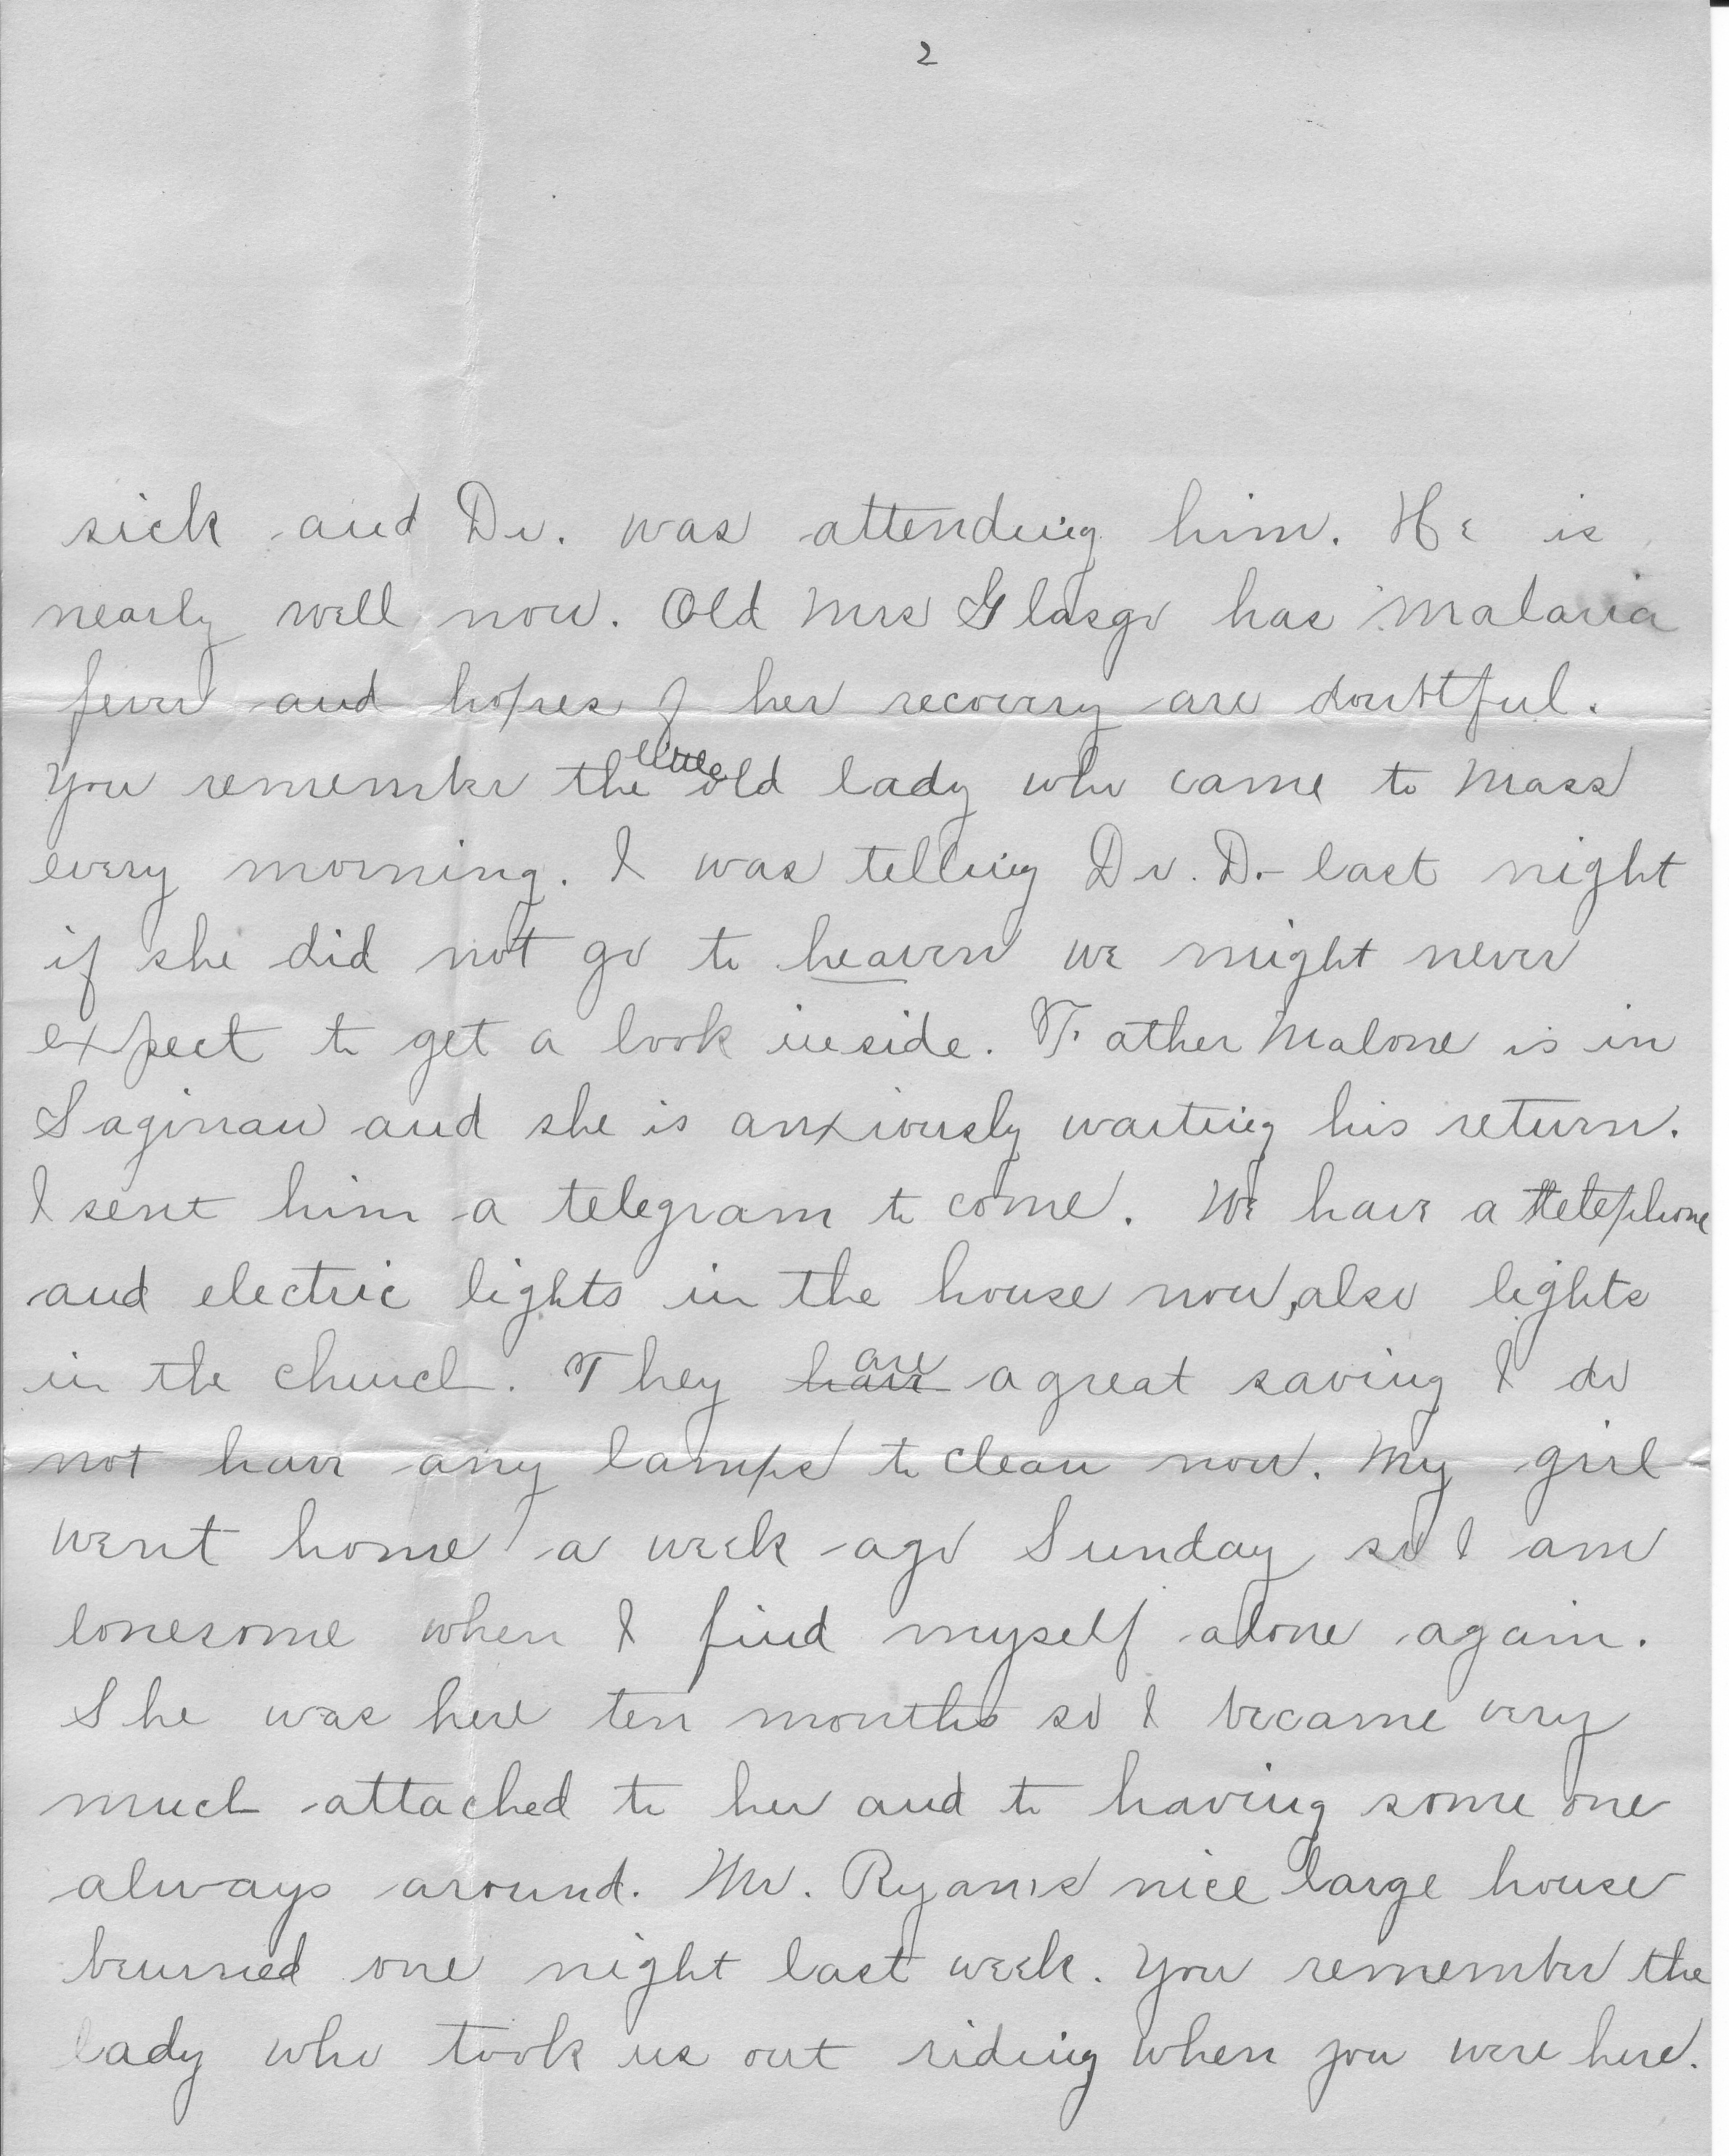 2
sick and Dr. was attending him. He is
nearly well now. Old Mrs Glasgo has Malaria
fever and hopes of her recovery are doubtful.
You remember the little old lady who came to Mass
every morning. I was telling Dr. D.- last night
if she did not go to heaven we might never
expect to get a look inside. Father Malone is in
Saginaw and she is anxiously waiting his return.
I sent him a telegram to come. We have a telephone
and electric lights in the house now, also lights
in the church. They have are a great saving I do
not have any lamps to clean now. My girl
went home a week ago Sunday so I am
lonesome when I find myself alone again.
She was here ten months so I became very
much attached to her and to having some one
always around. Mr. Ryan's nice large house
burned one night last week. You remember the
lady who took us out riding when you were here.